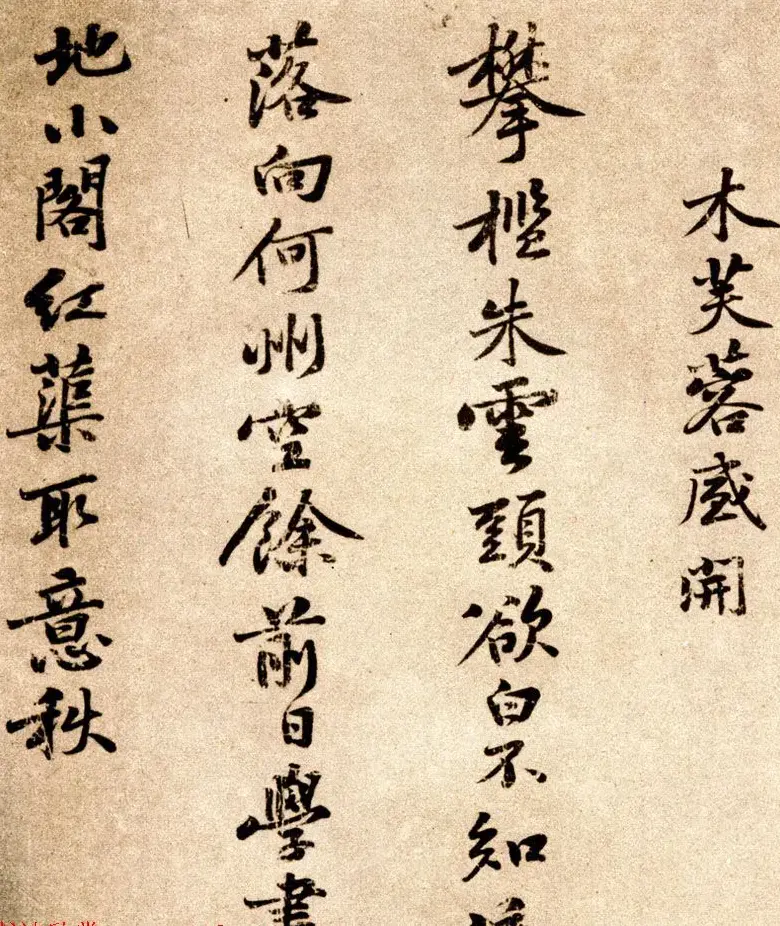 木芙蓉盛開
攀檻朱雲頭欲白不知
落向何州空餘前日學書
地小閣紅蕖取意秋